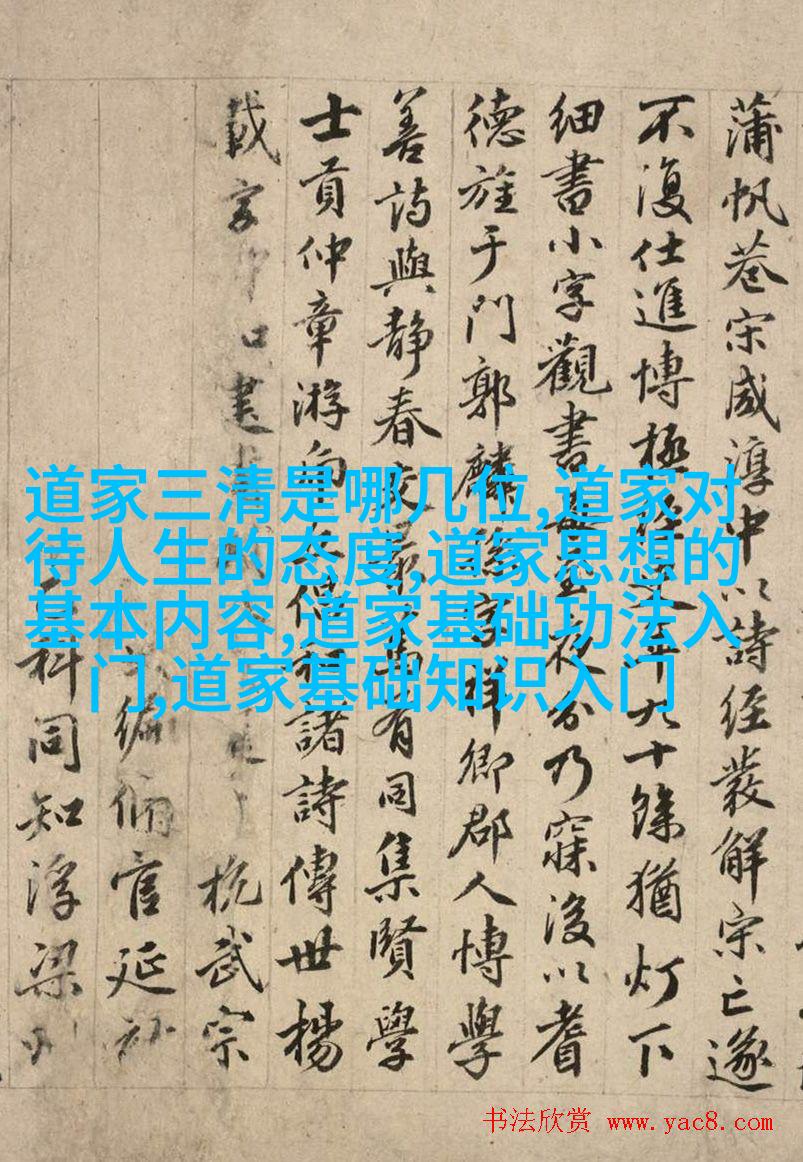 蒲帆巷宋咸淳中以詩經發解宋亡遂
不復仕進博極年九十餘猶灯下
細書小字觀書至夜分乃寐後以耆
德旌于門郭麟孫字祥卿郡人博學
善詩與靜春有同集賢學
士貢仲章游諸詩傳世楊
載字杭武宗
編脩官延祐
科同知浮梁州
道家三清是哪几位,道家对
待人生的态度,道家思想的
基本内容,道家基础功法入
门,道家基础知识入门
书法欣赏 www.yac8.com